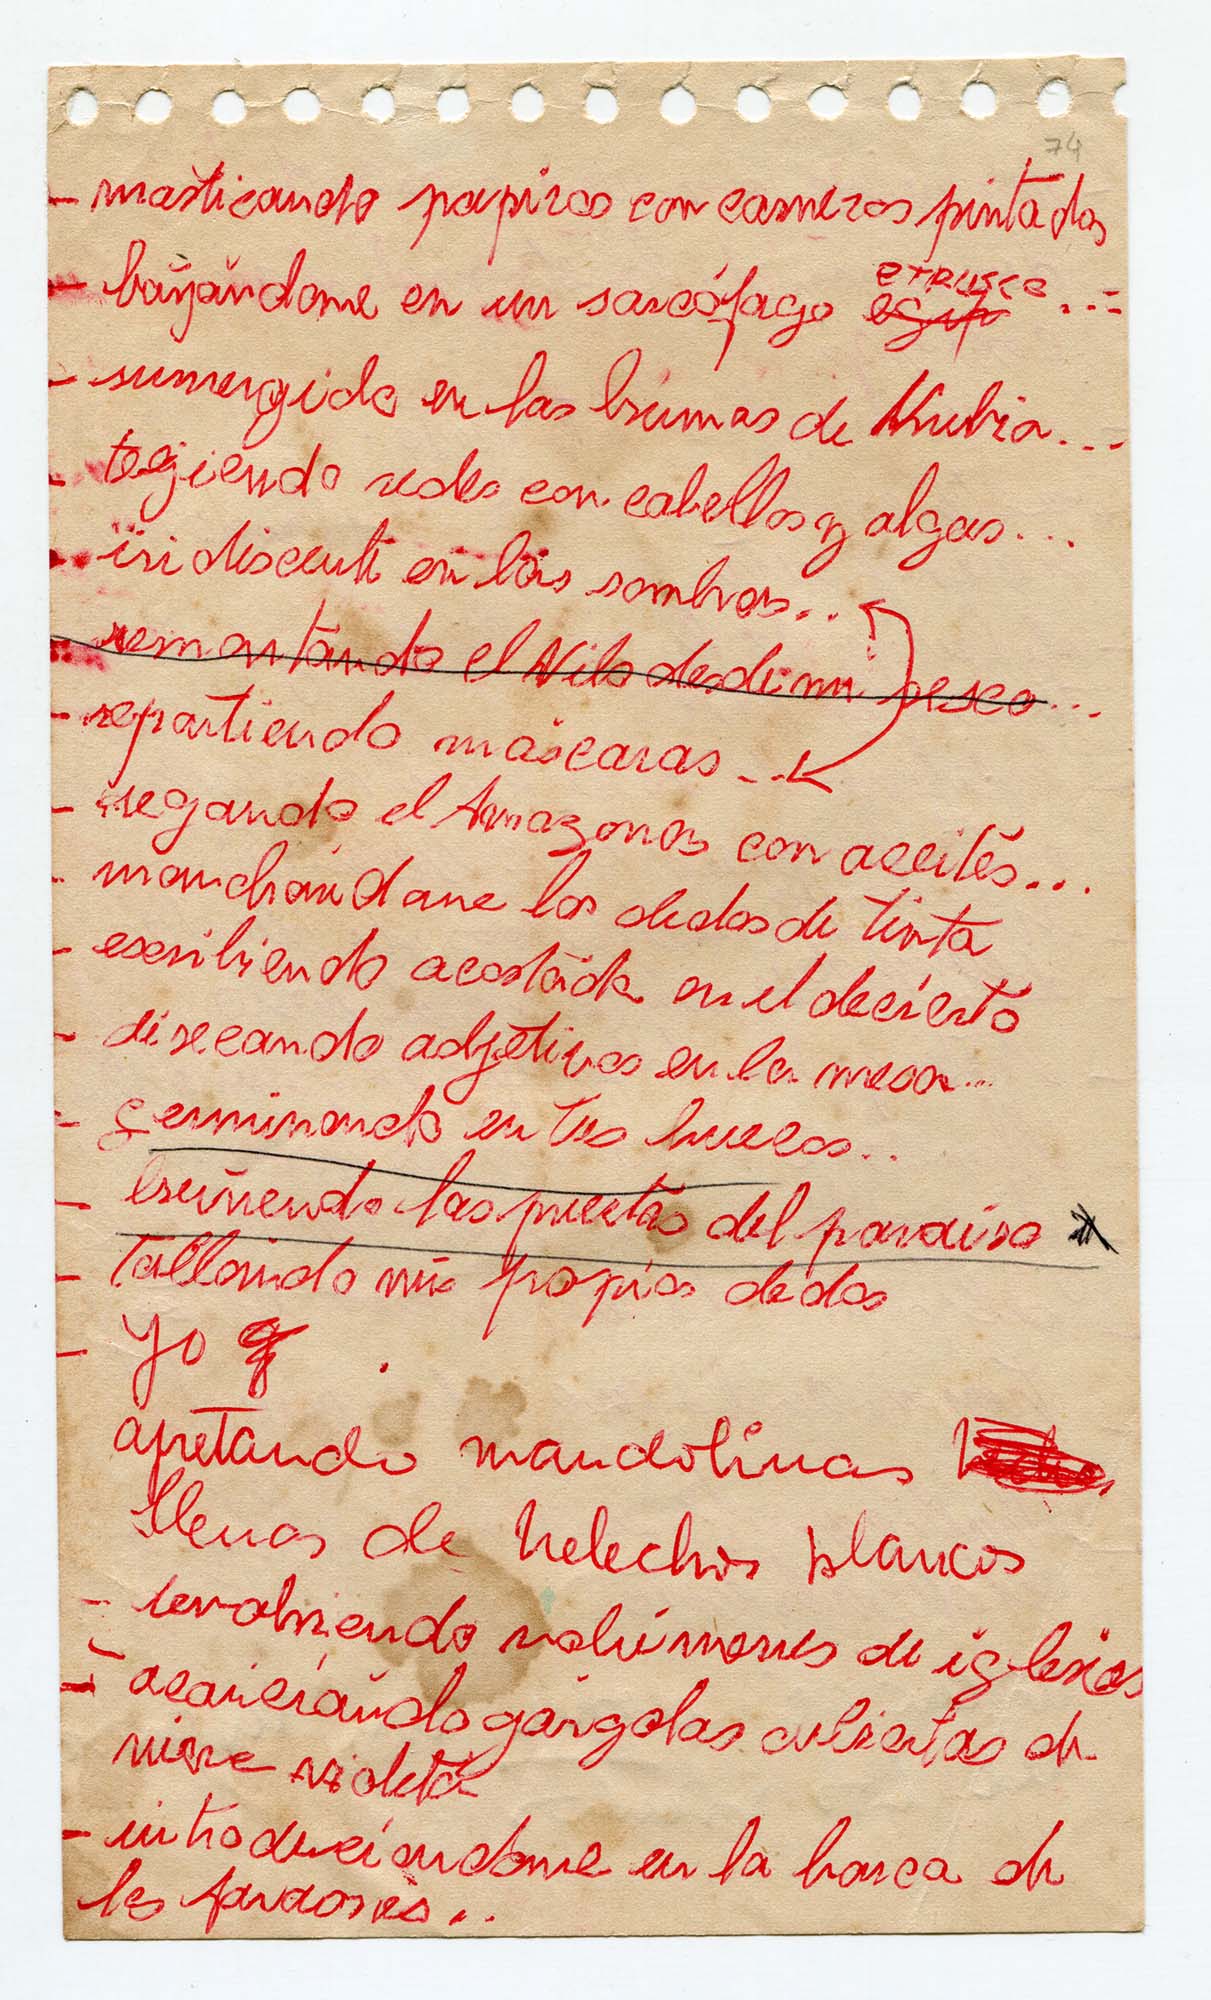 74
- masticando papiros con carneros pintados
- bañándome en un sarcófago etrusco ...
- sumergida en las brumas de Nubia...
- tejiendo redes con cabellos y algas...
- iridiscente en las sombras...
- remontando el Nilo desde mi deseo...
- repartiendo máscaras ...
- regando el Amazonas con aceites...
- manchándome los dedos de tinta
- escribiendo acostada en el decierto
- disecando adjetivos en la mesa...
- germinando en tus huecos..
- bruñendo las puertas del paraíso
- tallando mis propios dedos
- yo
apretando mandolinas
llenas de helechos blancos
- revolviendo volúmenes de iglesias
- acariciando gárgolas cubiertas de
nieve violeta
- introduciéndome en la barca de
los faraones..